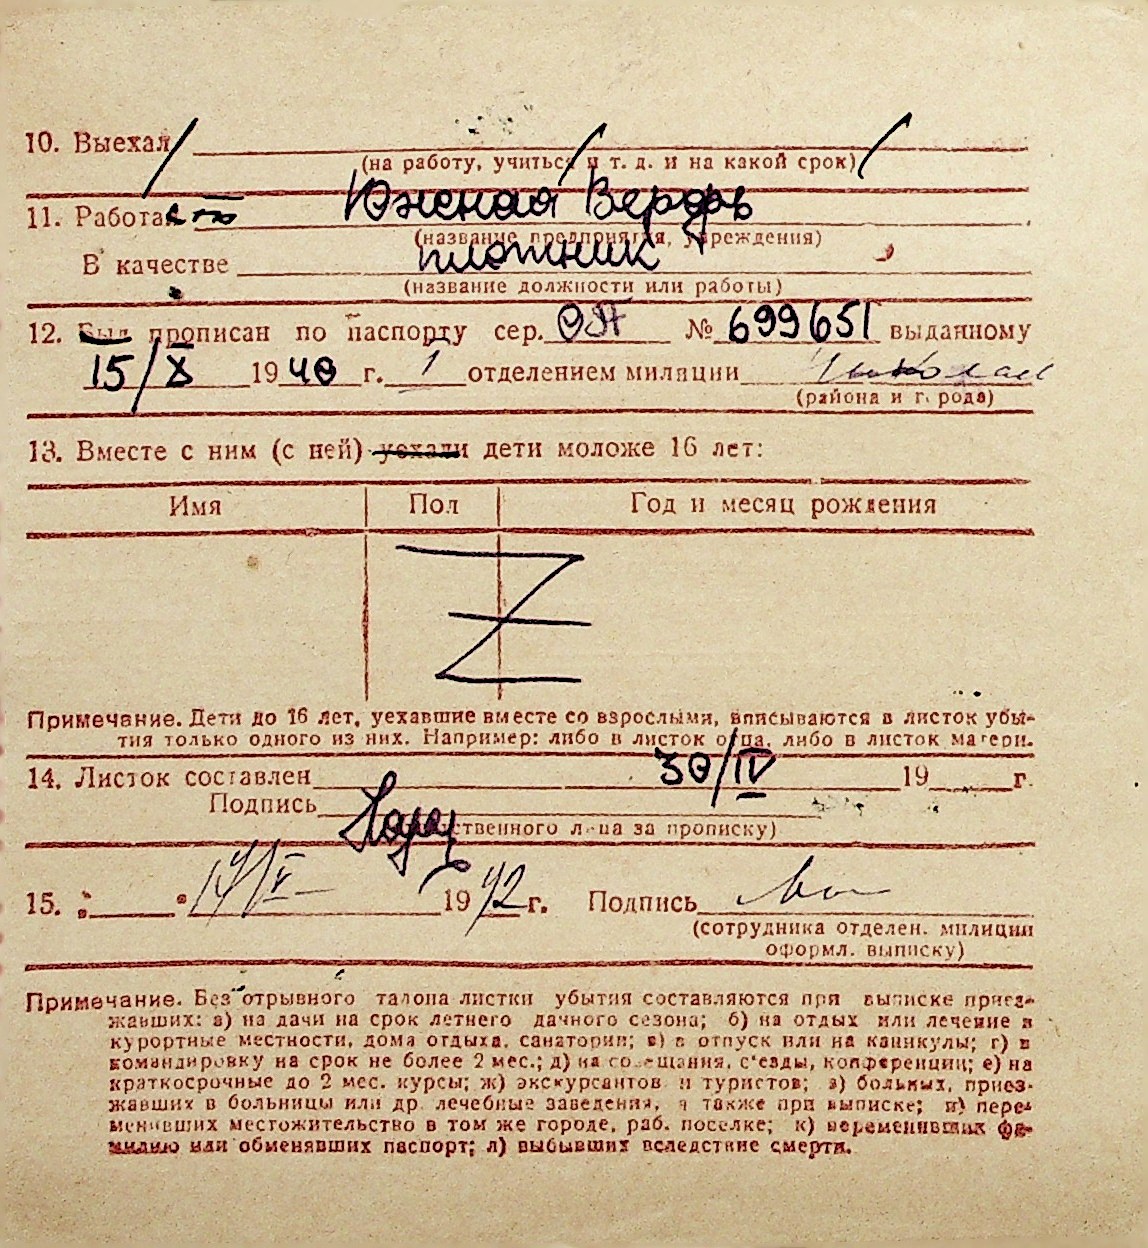 10. Выехал
(на работу, учиться и т. д. и на какой срок)
11. Работает Южная Верфь
(название предприятия, учреждения)
В качестве плотник
(название должности или работы)
12. Был прописан по паспорту сер. № 699651 выданному
15/X 1940 г. 1 отделением милиции Николаев
(района и города)
13. Вместе с ним (с ней) уехали дети моложе 16 лет:
Имя Пол Год и месяц рождения
Z
Примечание. Дети до 16 лет, уехавшие вместе со взрослыми, вписываются в листок убы-
тия только одного из них. Например: либо в листок отца, либо в листок матери.
14. Листок составлен 30/IV 19 г.
Подпись
(ответственного лица за прописку)
15. 14/V 1942 г. Подпись
(сотрудника отделен. милиции
оформл. выписку)
Примечание. Без отрывного талона листки убытия составляются при выписке приез-
жавших: а) на дачи на срок летнего дачного сезона; б) на отдых или лечение в
курортные местности, дома отдыха, санатории; в) в отпуск или на каникулы; г) в
командировку на срок не более 2 мес.; д) на совещания, с'езды, конференции; е) на
краткосрочные до 2 мес. курсы; ж) экскурсантов и туристов; з) больных, приез-
жавших в больницы или др. лечебные заведения, а также при выписке; и) пере-
менивших местожительство в том же городе, раб. поселке; к) переменивших фа-
милию или обменявших паспорт; л) выбывших вследствие смерти.